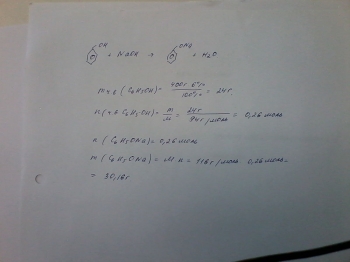 OH + NaOH → ONa + H₂O
m ч.в (C₆H₅OH) = 400г · 6% / 100% = 24г
n (ч.в C₆H₅OH) = m / M = 24г / 94г/моль = 0,26 моль
n (C₆H₅ONa) = 0,26 моль
m (C₆H₅ONa) = M · n = 116г/моль · 0,26 моль =
= 30,16г